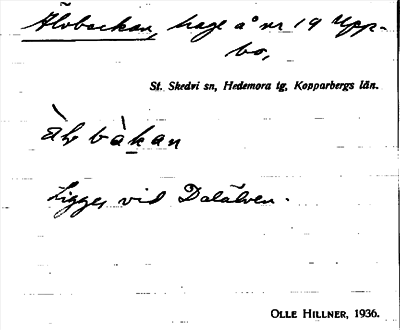 Älvbackan, hage å nr 19 Upp-
bo,
St. Skedvi sn, Hedemora tg, Kopparbergs län.
ä̀lv bàkan
Ligger vid Dalälven.
OLLE HILLNER, 1936.